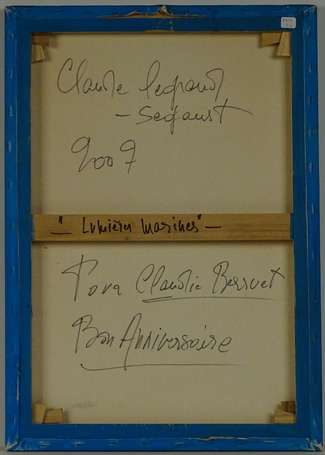 Claude Legrand
- Segaust
2007
"- Lumières Marines" -
Pour Claudie Berruet
Bon Anniversaire